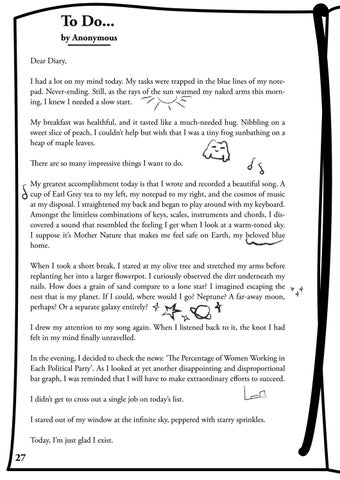 To Do...
by Anonymous
Dear Diary,
I had a lot on my mind today. My tasks were trapped in the blue lines of my note-
pad. Never-ending. Still, as the rays of the sun warmed my naked arms this morn-
ing, I knew I needed a slow start.
My breakfast was healthful, and it tasted like a much-needed hug. Nibbling on a
sweet slice of peach, I couldn't help but wish that I was a tiny frog sunbathing on a
heap of maple leaves.
There are so many impressive things I want to do.
My greatest accomplishment today is that I wrote and recorded a beautiful song. A
cup of Earl Grey tea to my left, my notepad to my right, and the cosmos of music
at my disposal. I straightened my back and began to play around with my keyboard.
Amongst the limitless combinations of keys, scales, instruments and chords, I dis-
covered a sound that resembled the feeling I get when I look at a warm-toned sky.
I suppose it's Mother Nature that makes me feel safe on Earth, my beloved blue
home.
When I took a short break, I stared at my olive tree and stretched my arms before
replanting her into a larger flowerpot. I curiously observed the dirt underneath my
nails. How does a grain of sand compare to a lone star? I imagined escaping the
nest that is my planet. If I could, where would I go? Neptune? A far-away moon,
perhaps? Or a separate galaxy entirely?
I drew my attention to my song again. When I listened back to it, the knot I had
felt in my mind finally unravelled.
In the evening, I decided to check the news: 'The Percentage of Women Working in
Each Political Party'. As I looked at yet another disappointing and disproportional
bar graph, I was reminded that I will have to make extraordinary efforts to succeed.
I didn't get to cross out a single job on today's list.
I stared out of my window at the infinite sky, peppered with starry sprinkles.
Today, I'm just glad I exist.
27